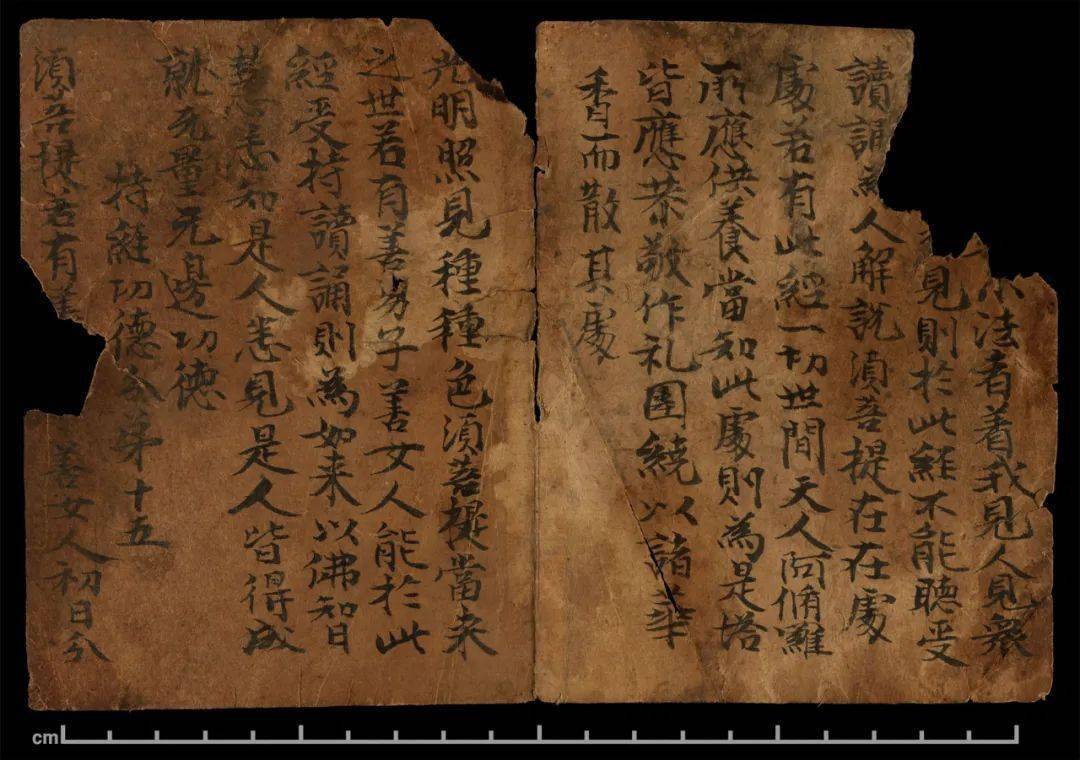 小法者着我見人見衆
見則於此經不能聽受
讀誦為人解說須菩提在在處
處若有此經一切世間天人阿脩羅
所應供養當知此處則為是塔
皆應恭敬作礼圍繞以諸華
香而散其處
光明照見種種色須菩提當来
之世若有善男子善女人能於此
經受持讀誦則為如来以佛智
慧悉知是人悉見是人皆得成
就无量无邊功德
持經功德分第十五
須菩提若有善善女人初日分
cm